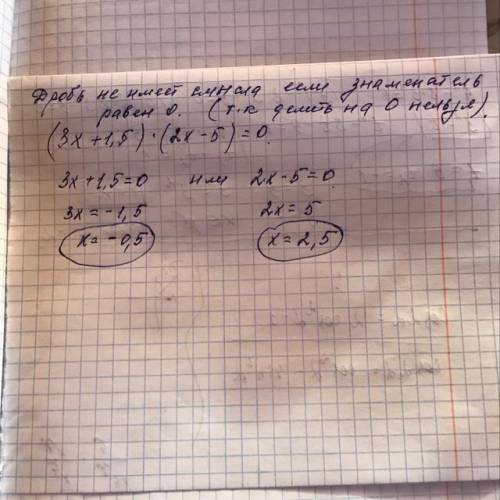 Дробь не имеет смысла если знаменатель
равен 0. (т.к делть на 0 нельзя).
(3x+1,5)·(2x-5)=0.
3x+1,5=0 или 2x-5=0
3x=-1,5 2x=5
x=-0,5 x=2,5